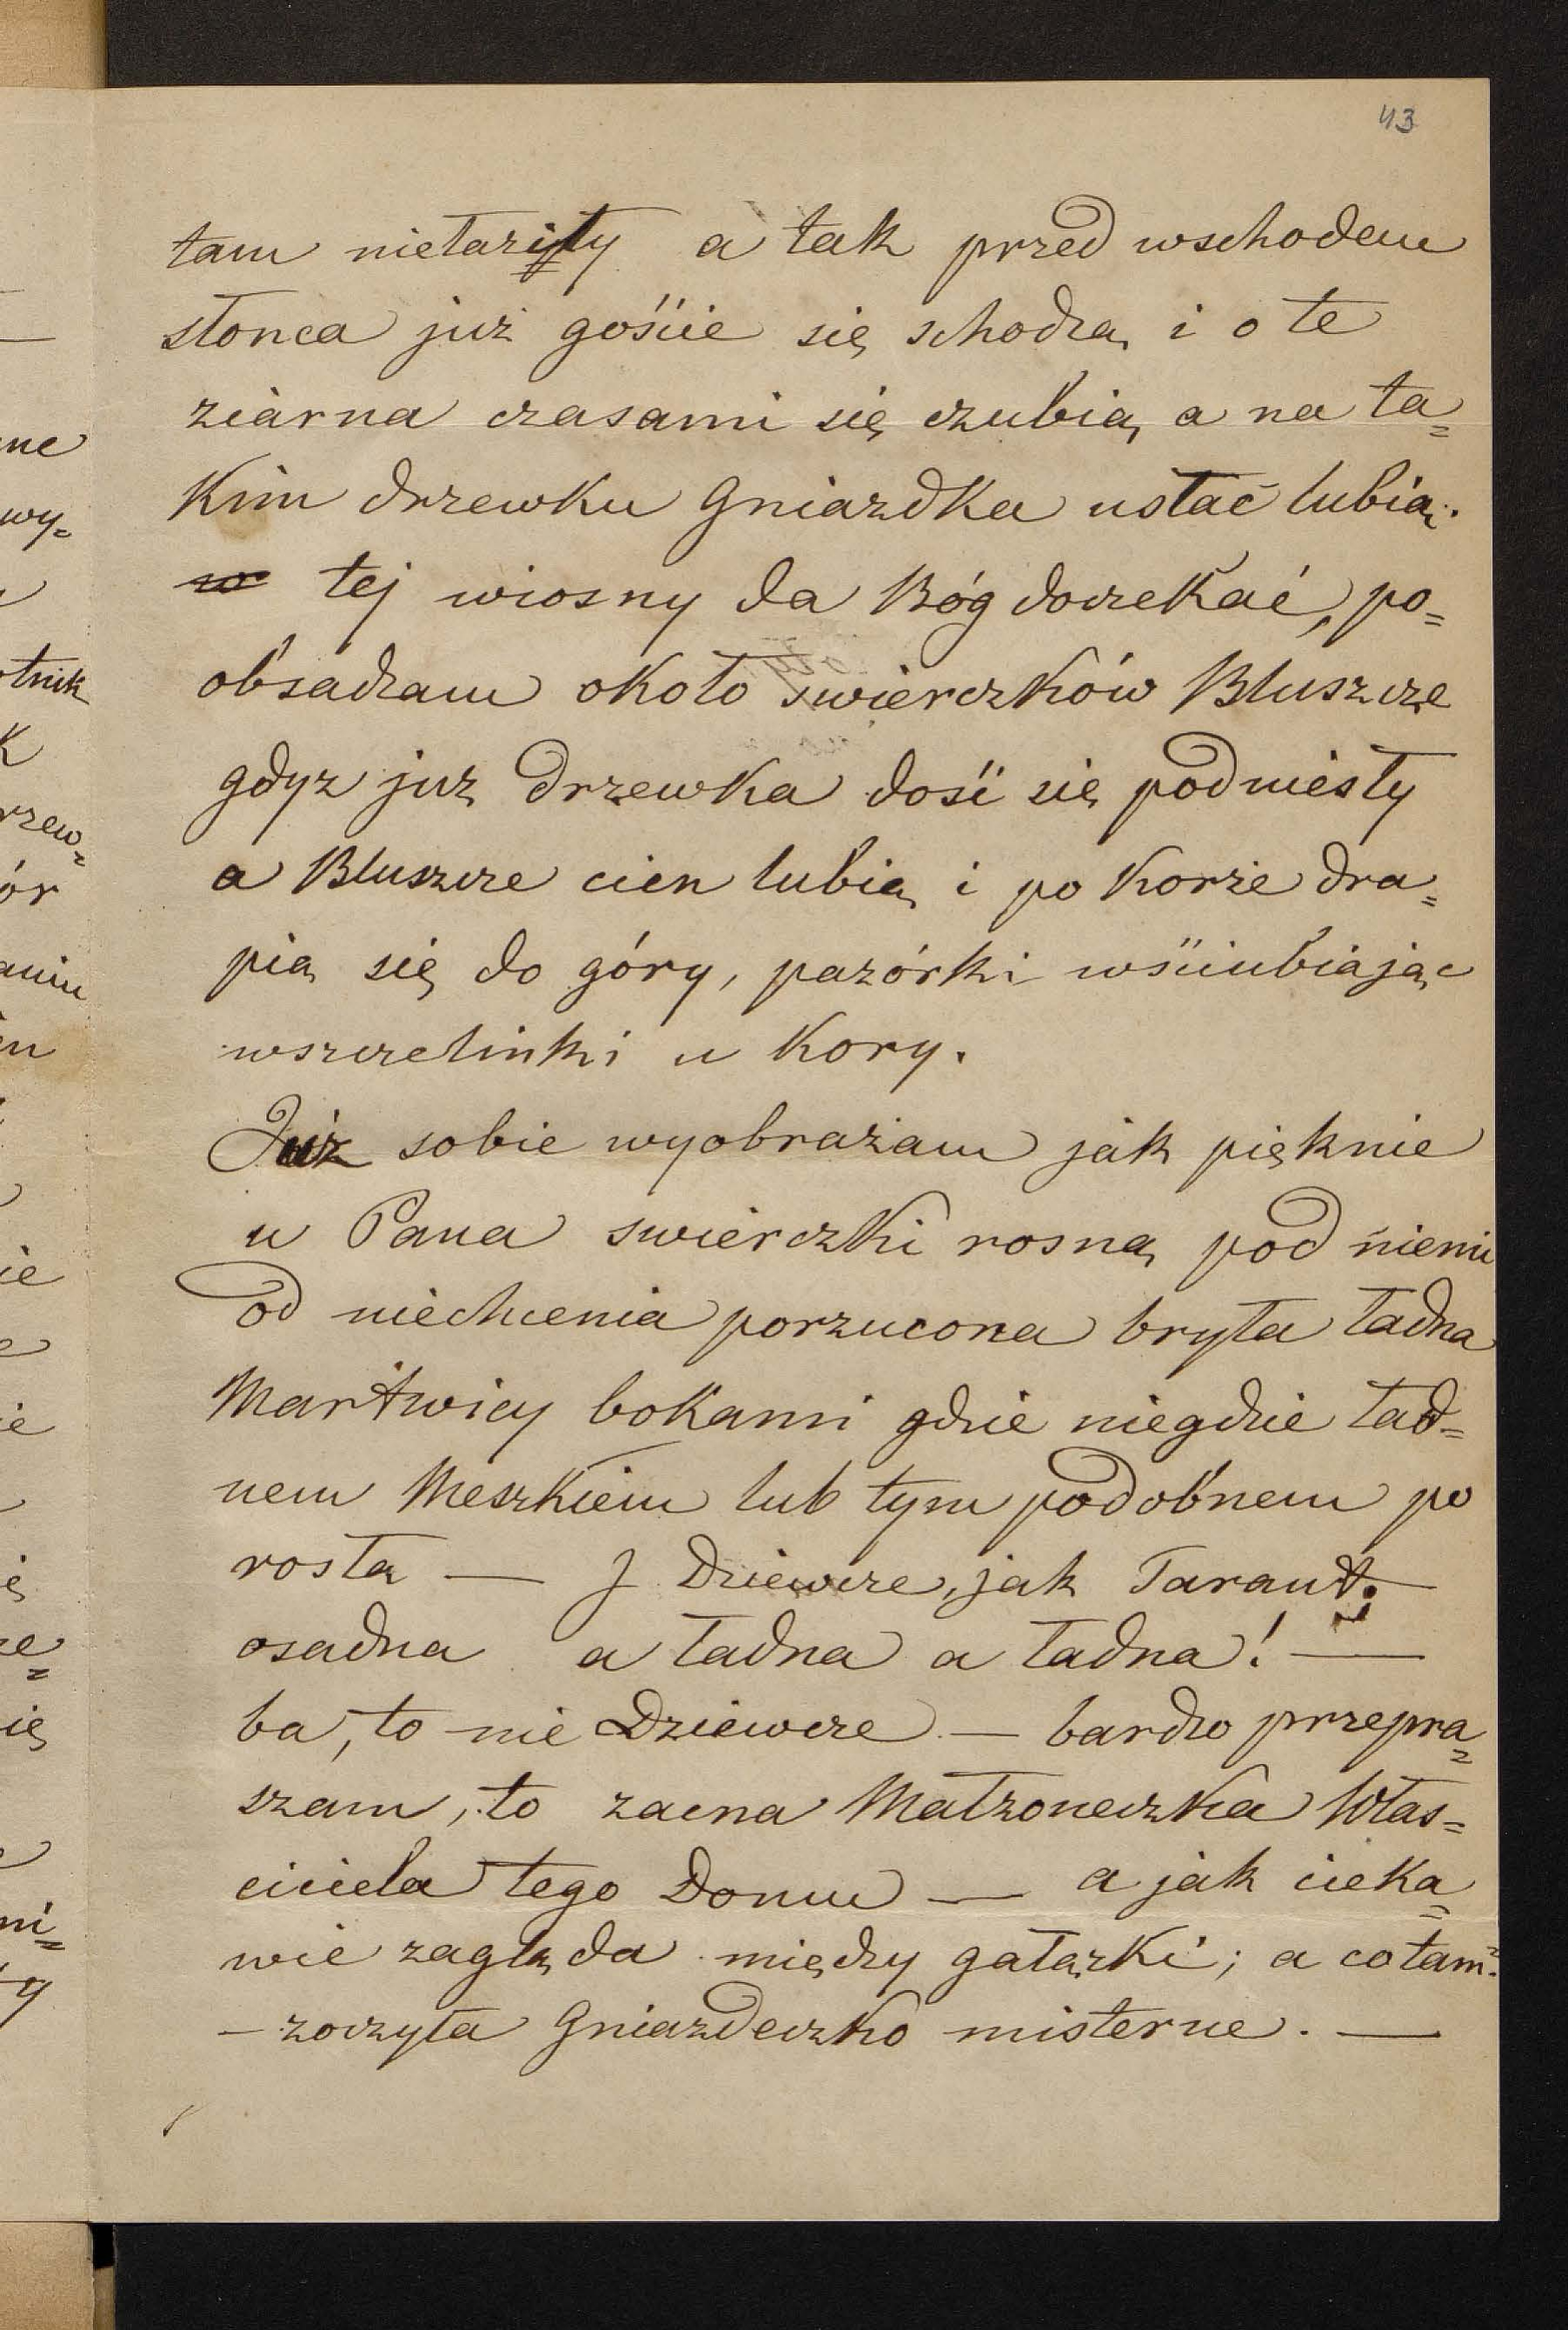 43
tam niełaziły a tak przed wschodem
słonca już goście się schodzą i o te
ziarna czasami się czubią, a na ta=
kim drzewku Gniazdka usłać lubią.
w tej wiosny da Bóg doczekać, po=
obsadzam około swierczków Bluszcze
gdyz już drzewka dość się podniesły
a Bluszcze cien lubią i po korze dra=
pią się do góry, pazórki wściubiając
wszczelinki u kory.
Już sobie wyobrażam jak pięknie
u Pana swierczki rosną, pod niemi
od niechcenia porzucona bryła ładna
Martwicy bokami gdzie niegdzie ład=
nem Meszkiem lub tym podobnem po
rosła — I Dziewcze, jak Tarant.
osadna a ładna a ładna! —
ba, to nie Dziewcze — bardzo przepra=
szam, to zacna Małzoneczka Włas=
ciciela tego Domu — a jak cieka=
wie zagląda między gałązki; a co tam
— zoczyła Gniazdeczko misterne. —